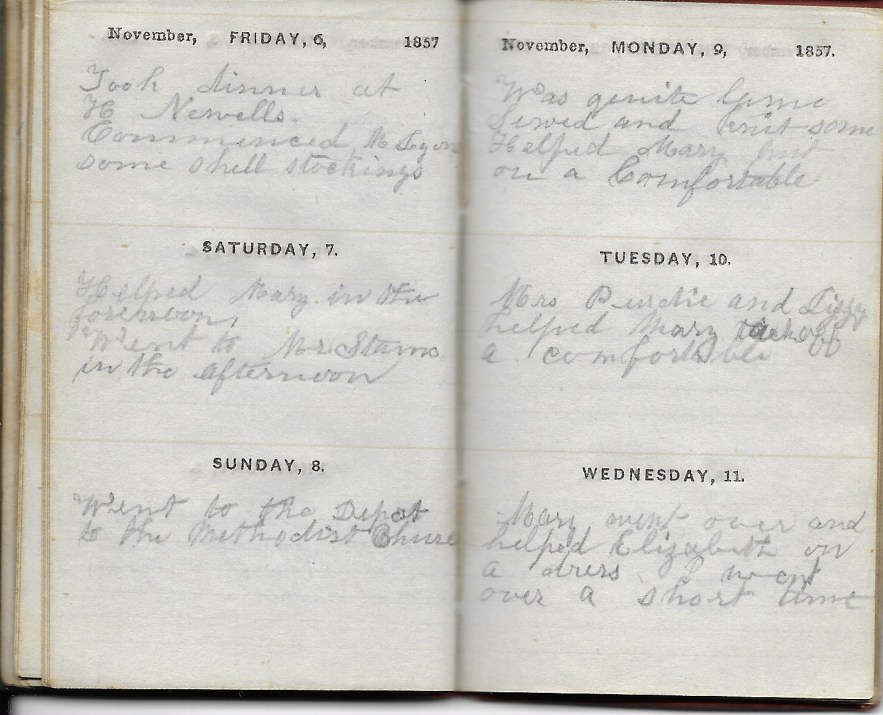 November, FRIDAY, 6, 1857
Took dinner at
H Newells.
Commenced
some shell stockings
SATURDAY, 7.
Helped Mary in the
forenoon,
Went to Mr Starns
in the afternoon
SUNDAY, 8.
Went to the Depot
to the Methodist
November, MONDAY, 9, 1857.
Was quite lame
Sewed and knit some
Helped Mary put
on a Comfortable
TUESDAY, 10.
Mrs and Lizzy
helped Mary take off
a comfortable
WEDNESDAY, 11.
Mary went over and
helped Elizabeth on
a dress. I went
over a short time